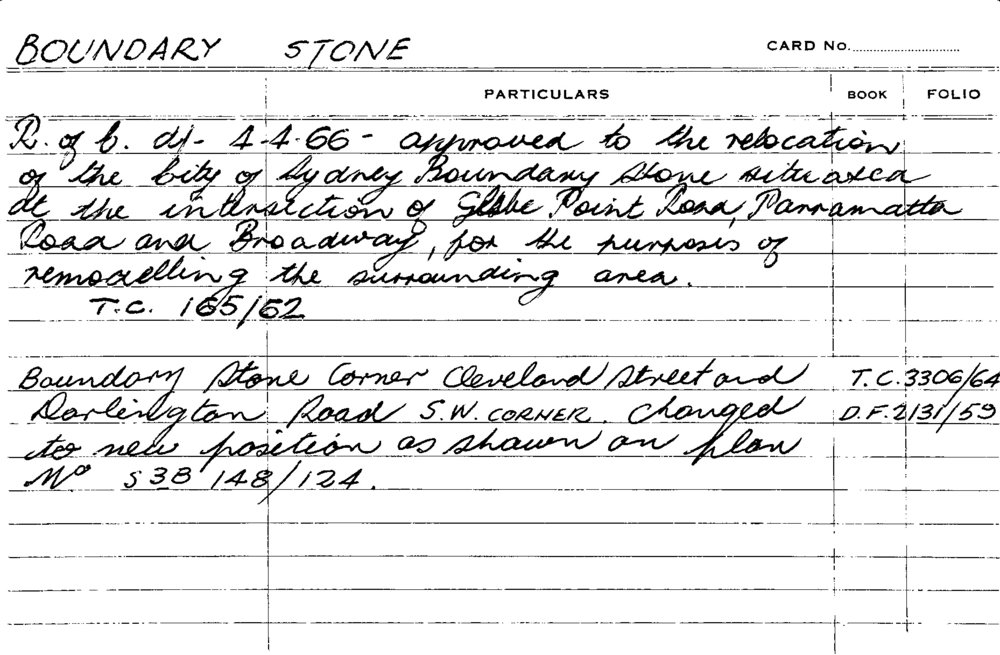 BOUNDARY STONE
CARD No.
PARTICULARS BOOK FOLIO
R. of C. dt- 4-4-66 - approved to the relocation
of the City of Sydney Boundary Stone situated
at the intersection of Glebe Point Road, Parramatta
Road and Broadway, for the purposes of
remodelling the surrounding area.
T.C. 165/62
Boundary Stone Corner Cleveland Street and T.C. 3306/64
Darlington Road S.W. CORNER. Changed D.F. 2131/59
to new position as shown on plan
No S3B 148/124.